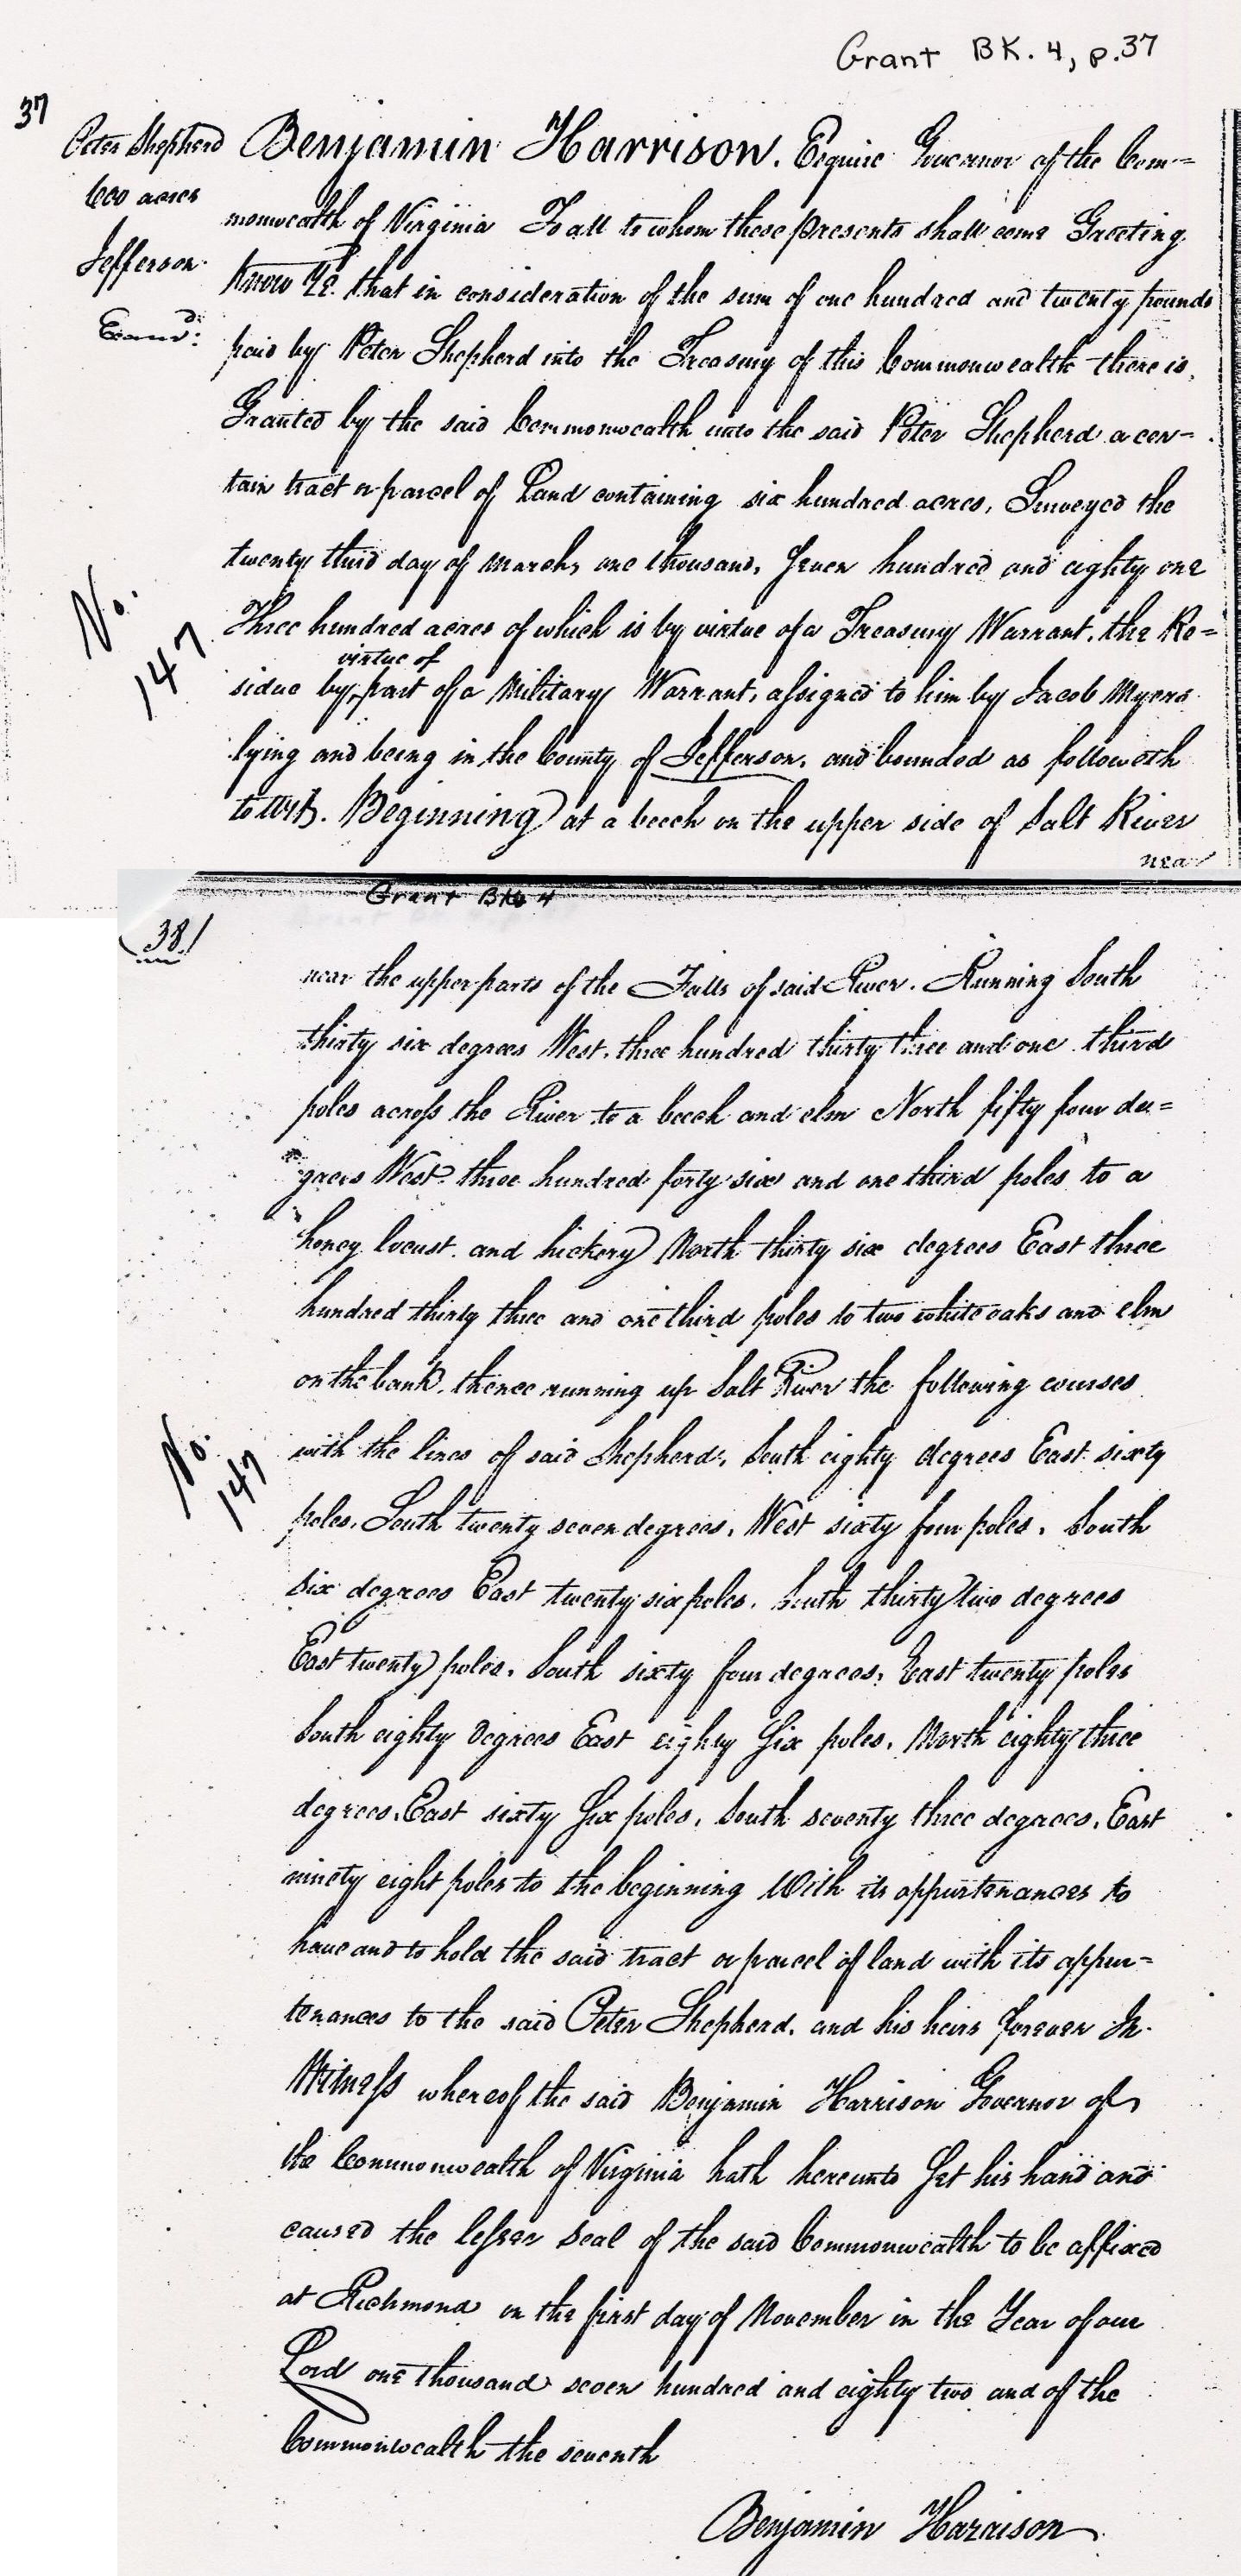 Grant BK. 4, p.37
37
Peter Shepherd
600 acres
Jefferson
Exam.d:
Benjamin Harrison. Esquire Governor of the Com-
monwealth of Virginia To all to whom these presents shall come Greeting
Know Ye. that in consideration of the sum of one hundred and twenty pounds
paid by Peter Shepherd into the Treasury of this Commonwealth there is,
Granted by the said Commonwealth unto the said Peter Shepherd a cer-
tain tract or parcel of Land containing six hundred acres, Surveyed the
twenty third day of March, one thousand, seven hundred and eighty one
Three hundred acres of which is by virtue of a Treasury Warrant, the Re-
virtue of
sidue by part of a Military Warrant, assigned to him by Jacob Myers
lying and being in the County of Jefferson, and bounded as followeth
to wit. Beginning at a beech on the upper side of Salt River
near
No. 147
Grant Bk 4
38
near the upper parts of the Falls of said River. Running South
thirty six degrees West, three hundred thirty three and one third
poles across the River to a beech and elm North fifty four de-
grees West three hundred forty six and one third poles to a
honey locust and hickory North thirty six degrees East three
hundred thirty three and one third poles to two white oaks and elm
on the bank, thence running up Salt River the following courses
with the lines of said Shepherd, South eighty degrees East sixty
poles, South twenty seven degrees, West sixty four poles, South
six degrees East twenty six poles, South thirty two degrees
East twenty poles, South sixty four degrees, East twenty poles
South eighty degrees East eighty six poles, North eighty three
degrees, East sixty six poles, South seventy three degrees, East
ninety eight poles to the beginning With its appurtenances to
have and to hold the said tract or parcel of land with its appur-
tenances to the said Peter Shepherd, and his heirs forever In
Witness whereof the said Benjamin Harrison Governor of
the Commonwealth of Virginia hath hereunto set his hand and
caused the lesser Seal of the said Commonwealth to be affixed
at Richmond on the first day of November in the Year of our
Lord one thousand seven hundred and eighty two and of the
Commonwealth the seventh
Benjamin Harrison
No. 147